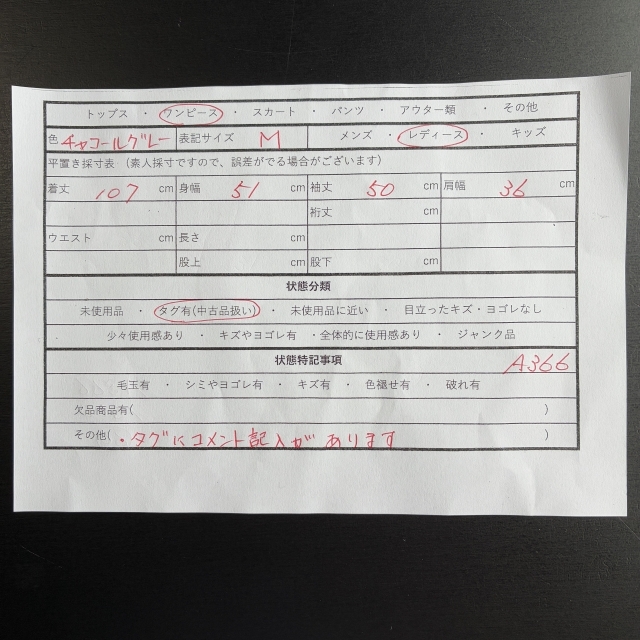 トップス ・ ワンピース ・ スカート ・ パンツ ・ アウター類 ・ その他
色 チャコールグレー 表記サイズ M メンズ ・ レディース ・ キッズ
平置き採寸表 （素人採寸ですので、誤差がでる場合がございます）
着丈 107 cm 身幅 51 cm 袖丈 50 cm 肩幅 36 cm
裄丈 cm
ウエスト cm 長さ cm
股上 cm 股下 cm
状態分類
未使用品 ・ タグ有(中古品扱い) ・ 未使用品に近い ・ 目立ったキズ・ヨゴレなし
少々使用感あり ・ キズやヨゴレ有 ・全体的に使用感あり ・ ジャンク品
状態特記事項 A366
毛玉有 ・ シミやヨゴレ有 ・ キズ有 ・ 色褪せ有 ・ 破れ有
欠品商品有( )
その他( ・タグにコメント記入があります )